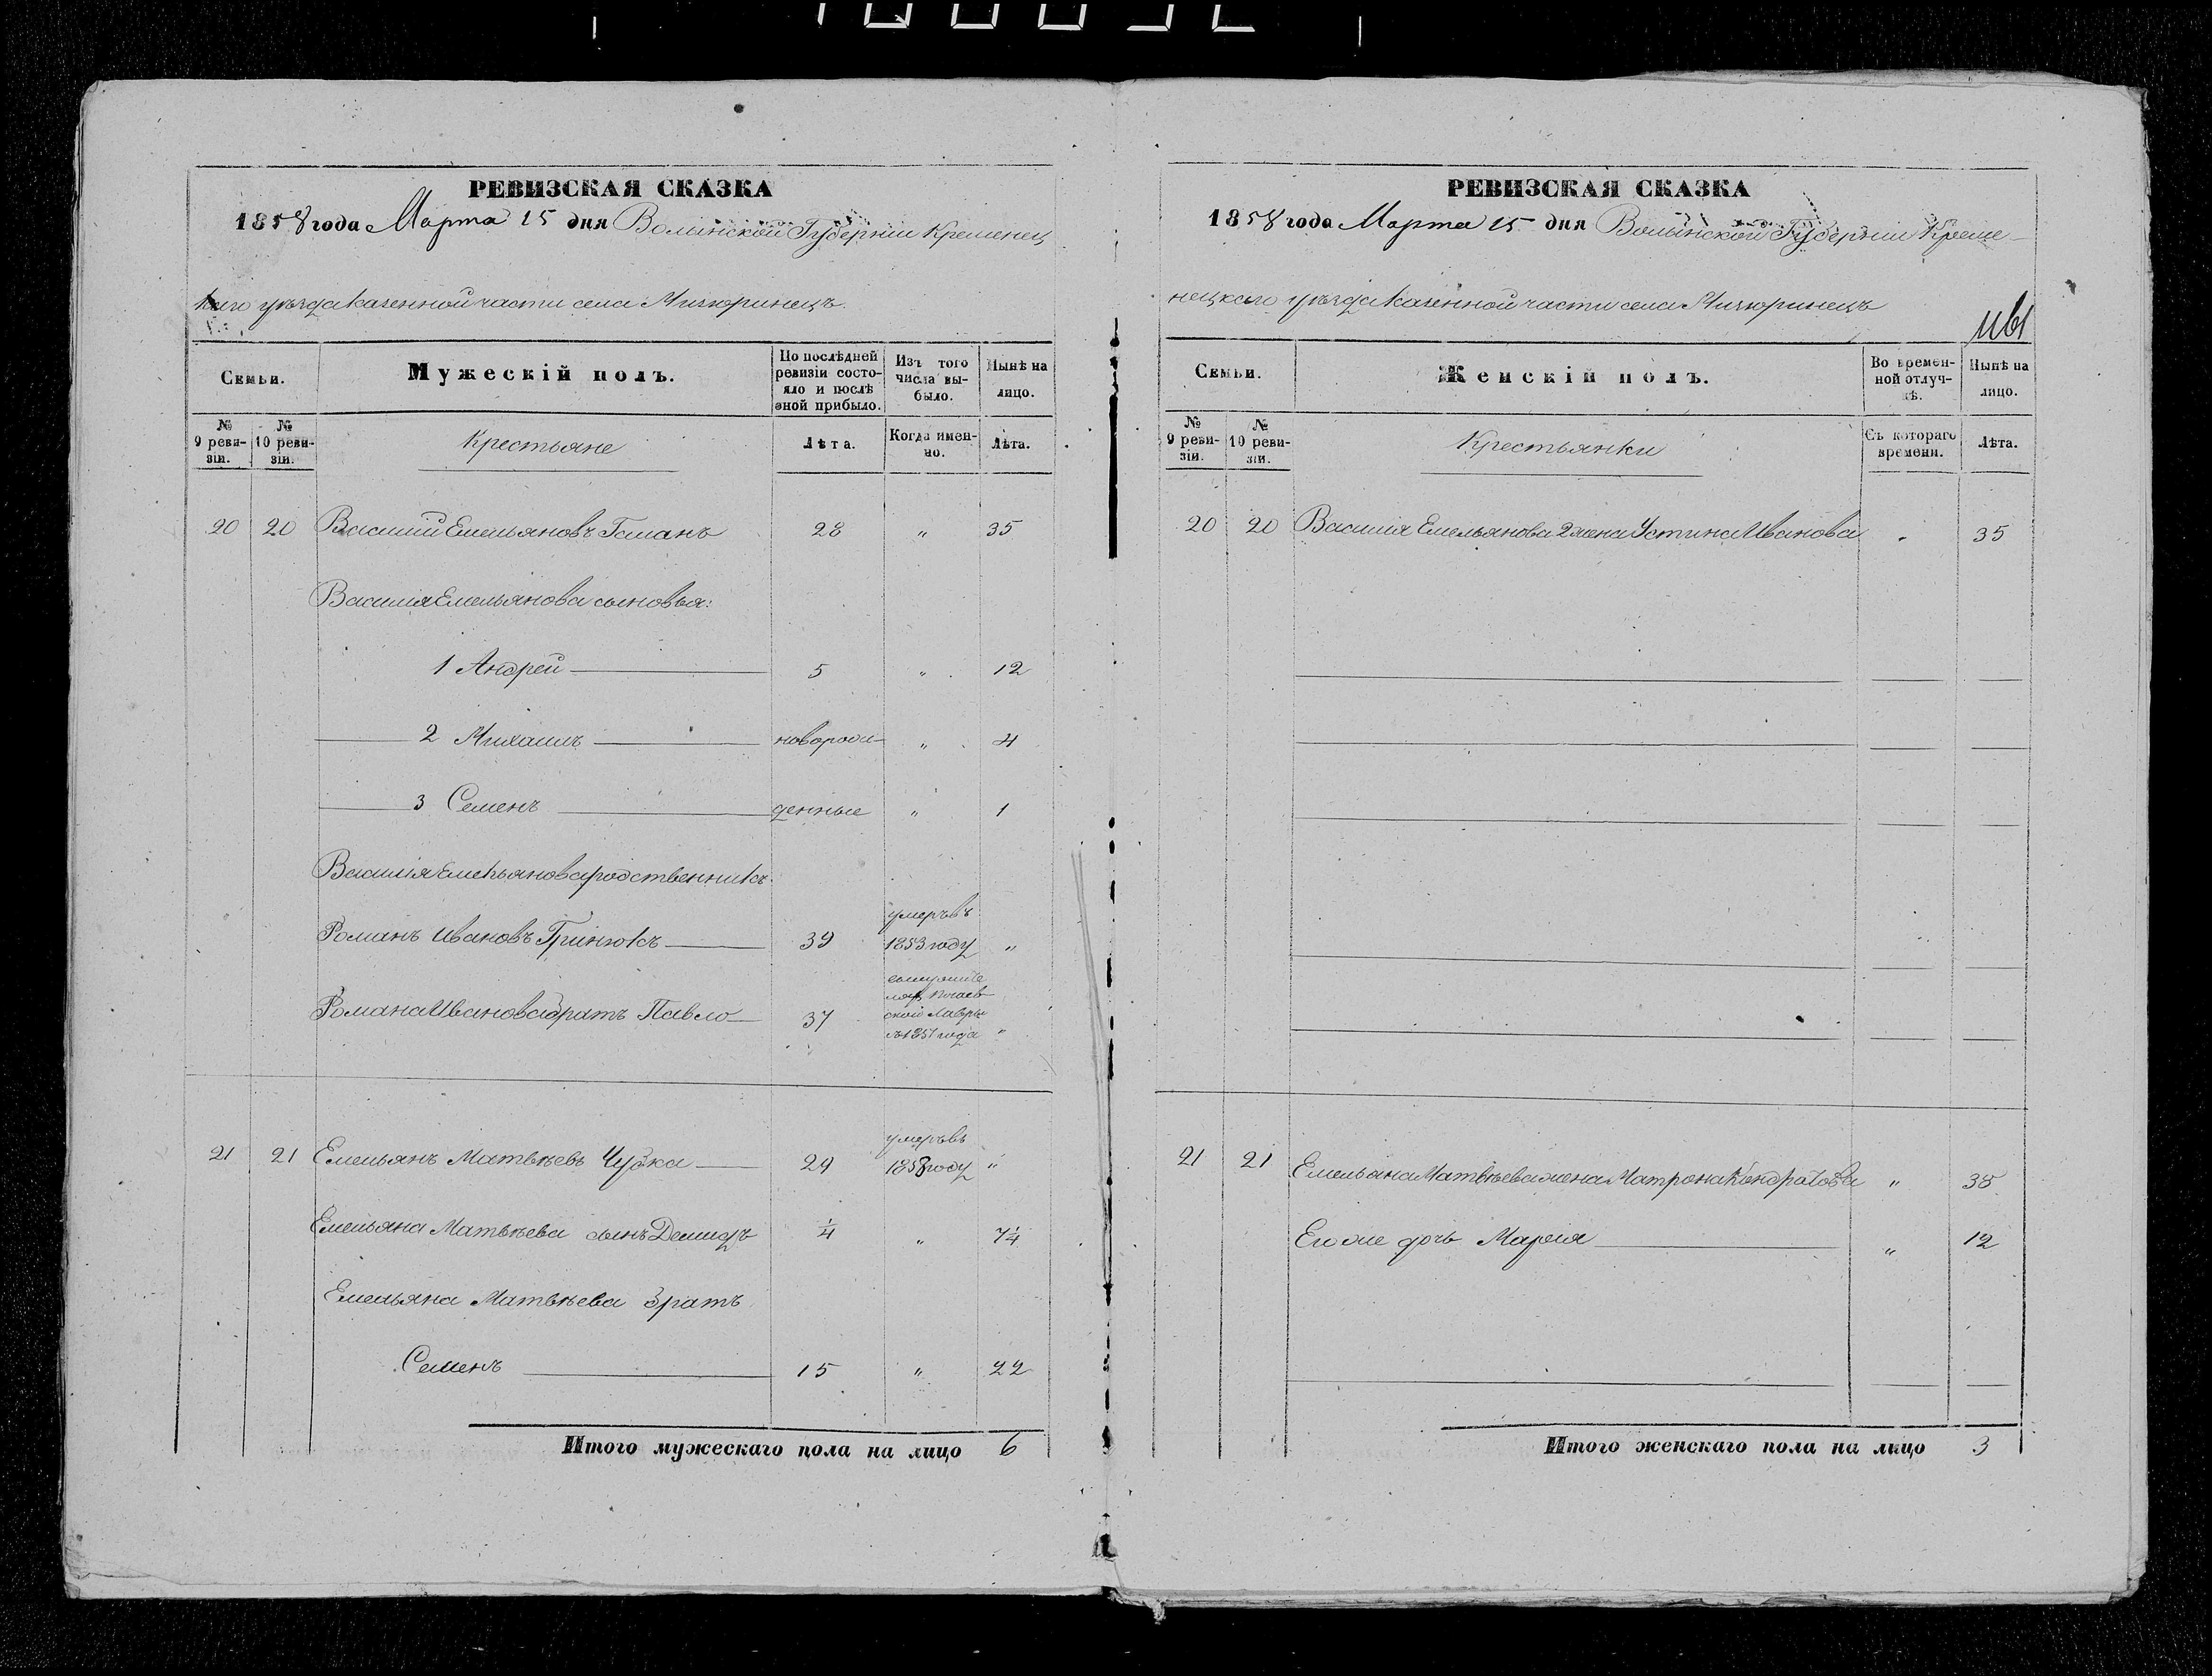 РЕВИЗСКАЯ СКАЗКА
1858 года Марта 15 дня Волынской Губерніи Кременец
каго уѣзда казенной части села Мизюринецъ
Семьи.
Мужескій полъ.
По послѣдней ревизіи состояло и послѣ оной прибыло.
Изъ того числа выбыло.
Нынѣ на лицо.
№ 9 ревизіи.
№ 10 ревизіи.
Крестьяне
Лѣта.
Когда именно.
Лѣта.
20 20 Василій Емельяновъ Гаманъ 28 " 35
Василія Емельянова сыновья:
1 Андрей 5 " 12
2 Михаилъ новорож- " 4
3 Семенъ денные " 1
Василія Емельянова родственникъ
умеръ въ
Романъ Ивановъ Гринюкъ 39 1853 году "
Почаев-
ской Лавры
Романа Иванова братъ Павло 37
1851 года "
умеръ въ
21 21 Емельянъ Матвѣевъ Чубка 29 1858 году "
Емельяна Матвѣева сынъ Демидъ ¼ " 7¼
Емельяна Матвѣева братъ
Семенъ 15 " 22
Итого мужескаго пола на лицо 6
РЕВИЗСКАЯ СКАЗКА
1858 года Марта 15 дня Волынской Губерніи Креме-
нецкаго уѣзда казенной части села Мизюринецъ
Семьи.
Женскій полъ.
Во временной отлучкѣ.
Нынѣ на лицо.
№ 9 ревизіи.
№ 10 ревизіи.
Крестьянки
Съ котораго времени.
Лѣта.
20 20 Василія Емельянова 2 жена Устина Иванова " 35
21 21 Емельяна Матвѣева жена Матрона Кондратова " 38
Его же дочь Марія " 12
Итого женскаго пола на лицо 3